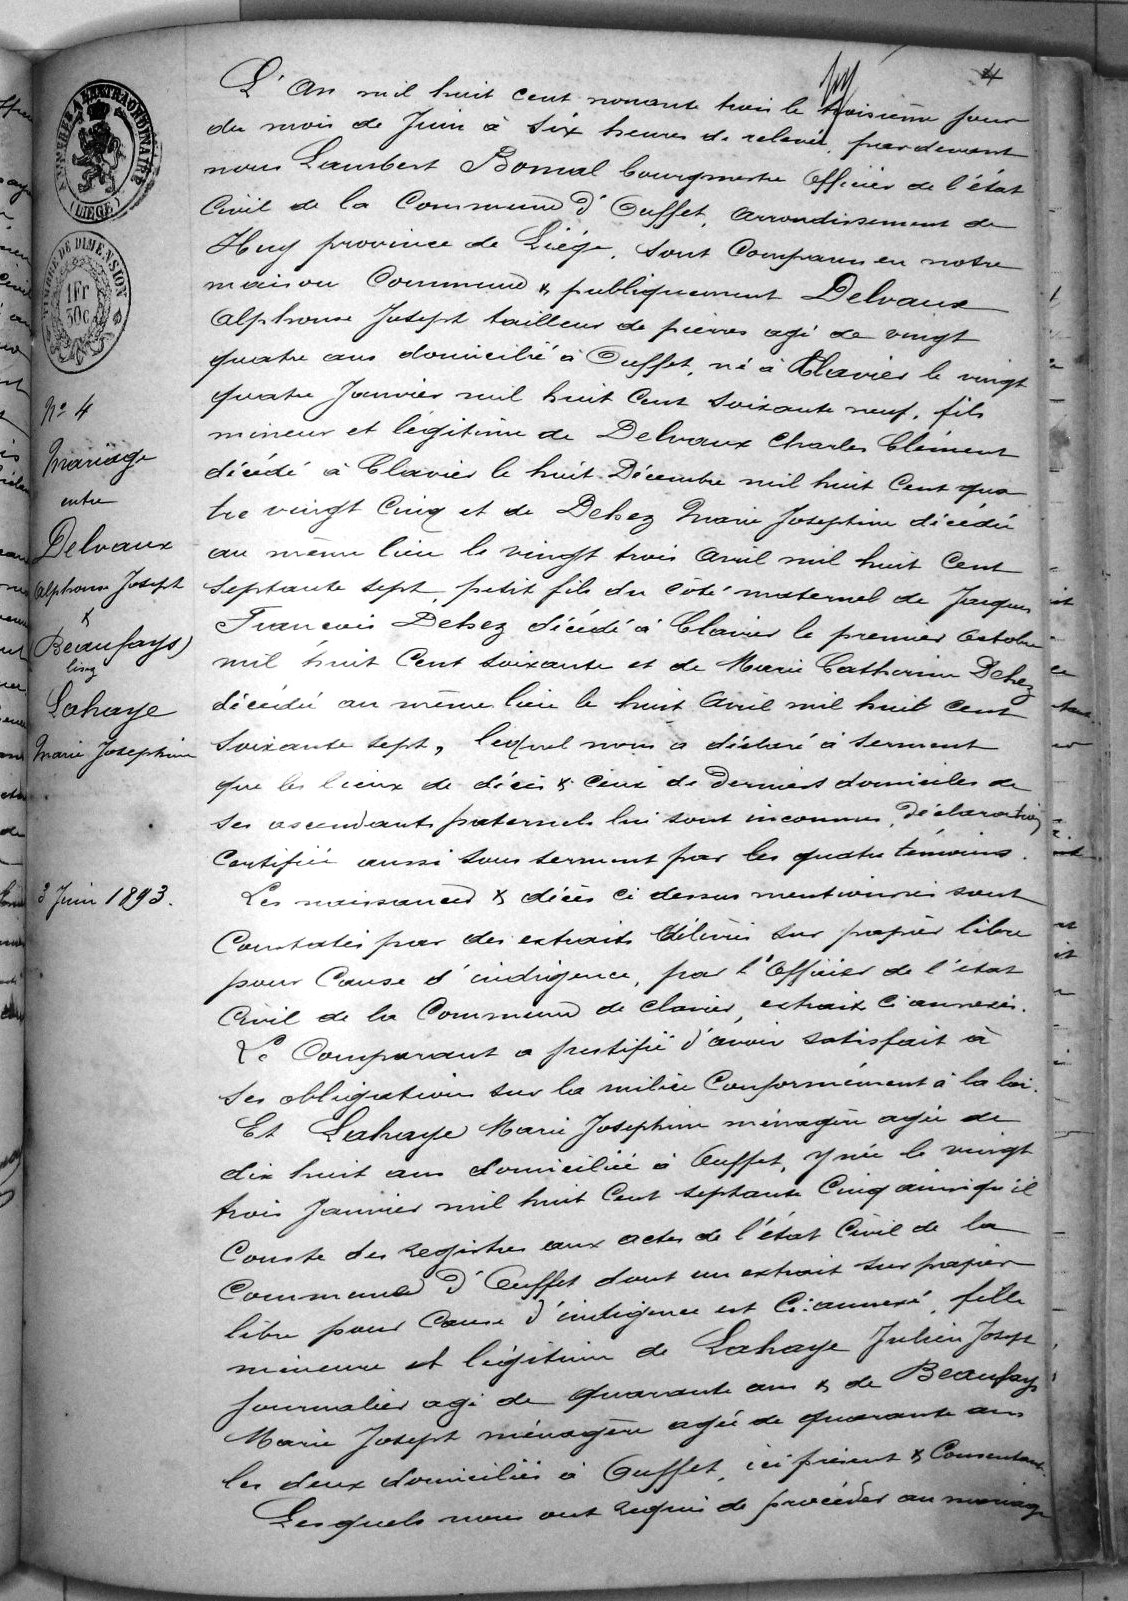 4
L'An mil huit cent nonante trois le troisième jour
du mois de Juin à six heures de relevée, pardevant
nous Lambert Bonmal bourgmestre officier de l'état
Civil de la Commune d'Ouffet, arrondissement de
Huy province de Liége, sont Comparu en notre
maison Commune & publiquement Delvaux
Alphonse Joseph tailleur de pierres agé de vingt
quatre ans domicilié à Ouffet, né à Clavier le vingt
quatre Janvier mil huit Cent soixante neuf, fils
mineur et légitime de Delvaux Charles Clément
décédé à Clavier le huit Décembre mil huit Cent qua
tre vingt Cinq et de Dehez Marie Josephine décédée
au même lieu le vingt trois avril mil huit Cent
septante sept, petit fils du côté maternel de Jacques
François Dehez décédé à Clavier le premier octobre
mil huit Cent soixante et de Marie Catherine Dehez
décédée au même lieu le huit avril mil huit cent
soixante sept, lequel nous a déclaré à serment
que les lieux de décès & ceux de derniers domiciles de
ses ascendants paternels lui sont inconnus, déclaration
certifiée aussi sous serment par les quatre témoins.
Les naissances & décès ci dessus mentionnés sont
Constatés par des extraits délivrés sur papier libre
pour Cause d'indigence, par l'officier de l'état
Civil de la Commune de clavier, extraits ci annexés.
Le Comparant a justifié d'avoir satisfait à
ses obligations sur la milice Conformément à la loi.
Et Lahaye Marie Josephine ménagère agée de
dix huit ans domiciliée à Ouffet, y née le vingt
trois Janvier mil huit Cent septante Cinq ainsi qu'il
Conste des registres aux actes de l'état Civil de la
Commune d'Ouffet dont un extrait sur papier
libre pour Cause d'indigence est Ci-annexé, fille
mineure et légitime de Lahaye Julien Joseph
journalier agé de quarante ans & de Beaufays
Marie Joseph ménagère agée de quarante ans
les deux domiciliés à Ouffet, ici présent & Consentant.
Lesquels nous ont requis de procéder au mariage
EXTRAORDINAIRE
(LIÉGE)
TIMBRE DE DIMENSION
1Fr
30c
No 4
Mariage
entre
Delvaux
Alphonse Joseph
&
(Beaufays)
Lahaye
Marie Josephine
3 Juin 1893.